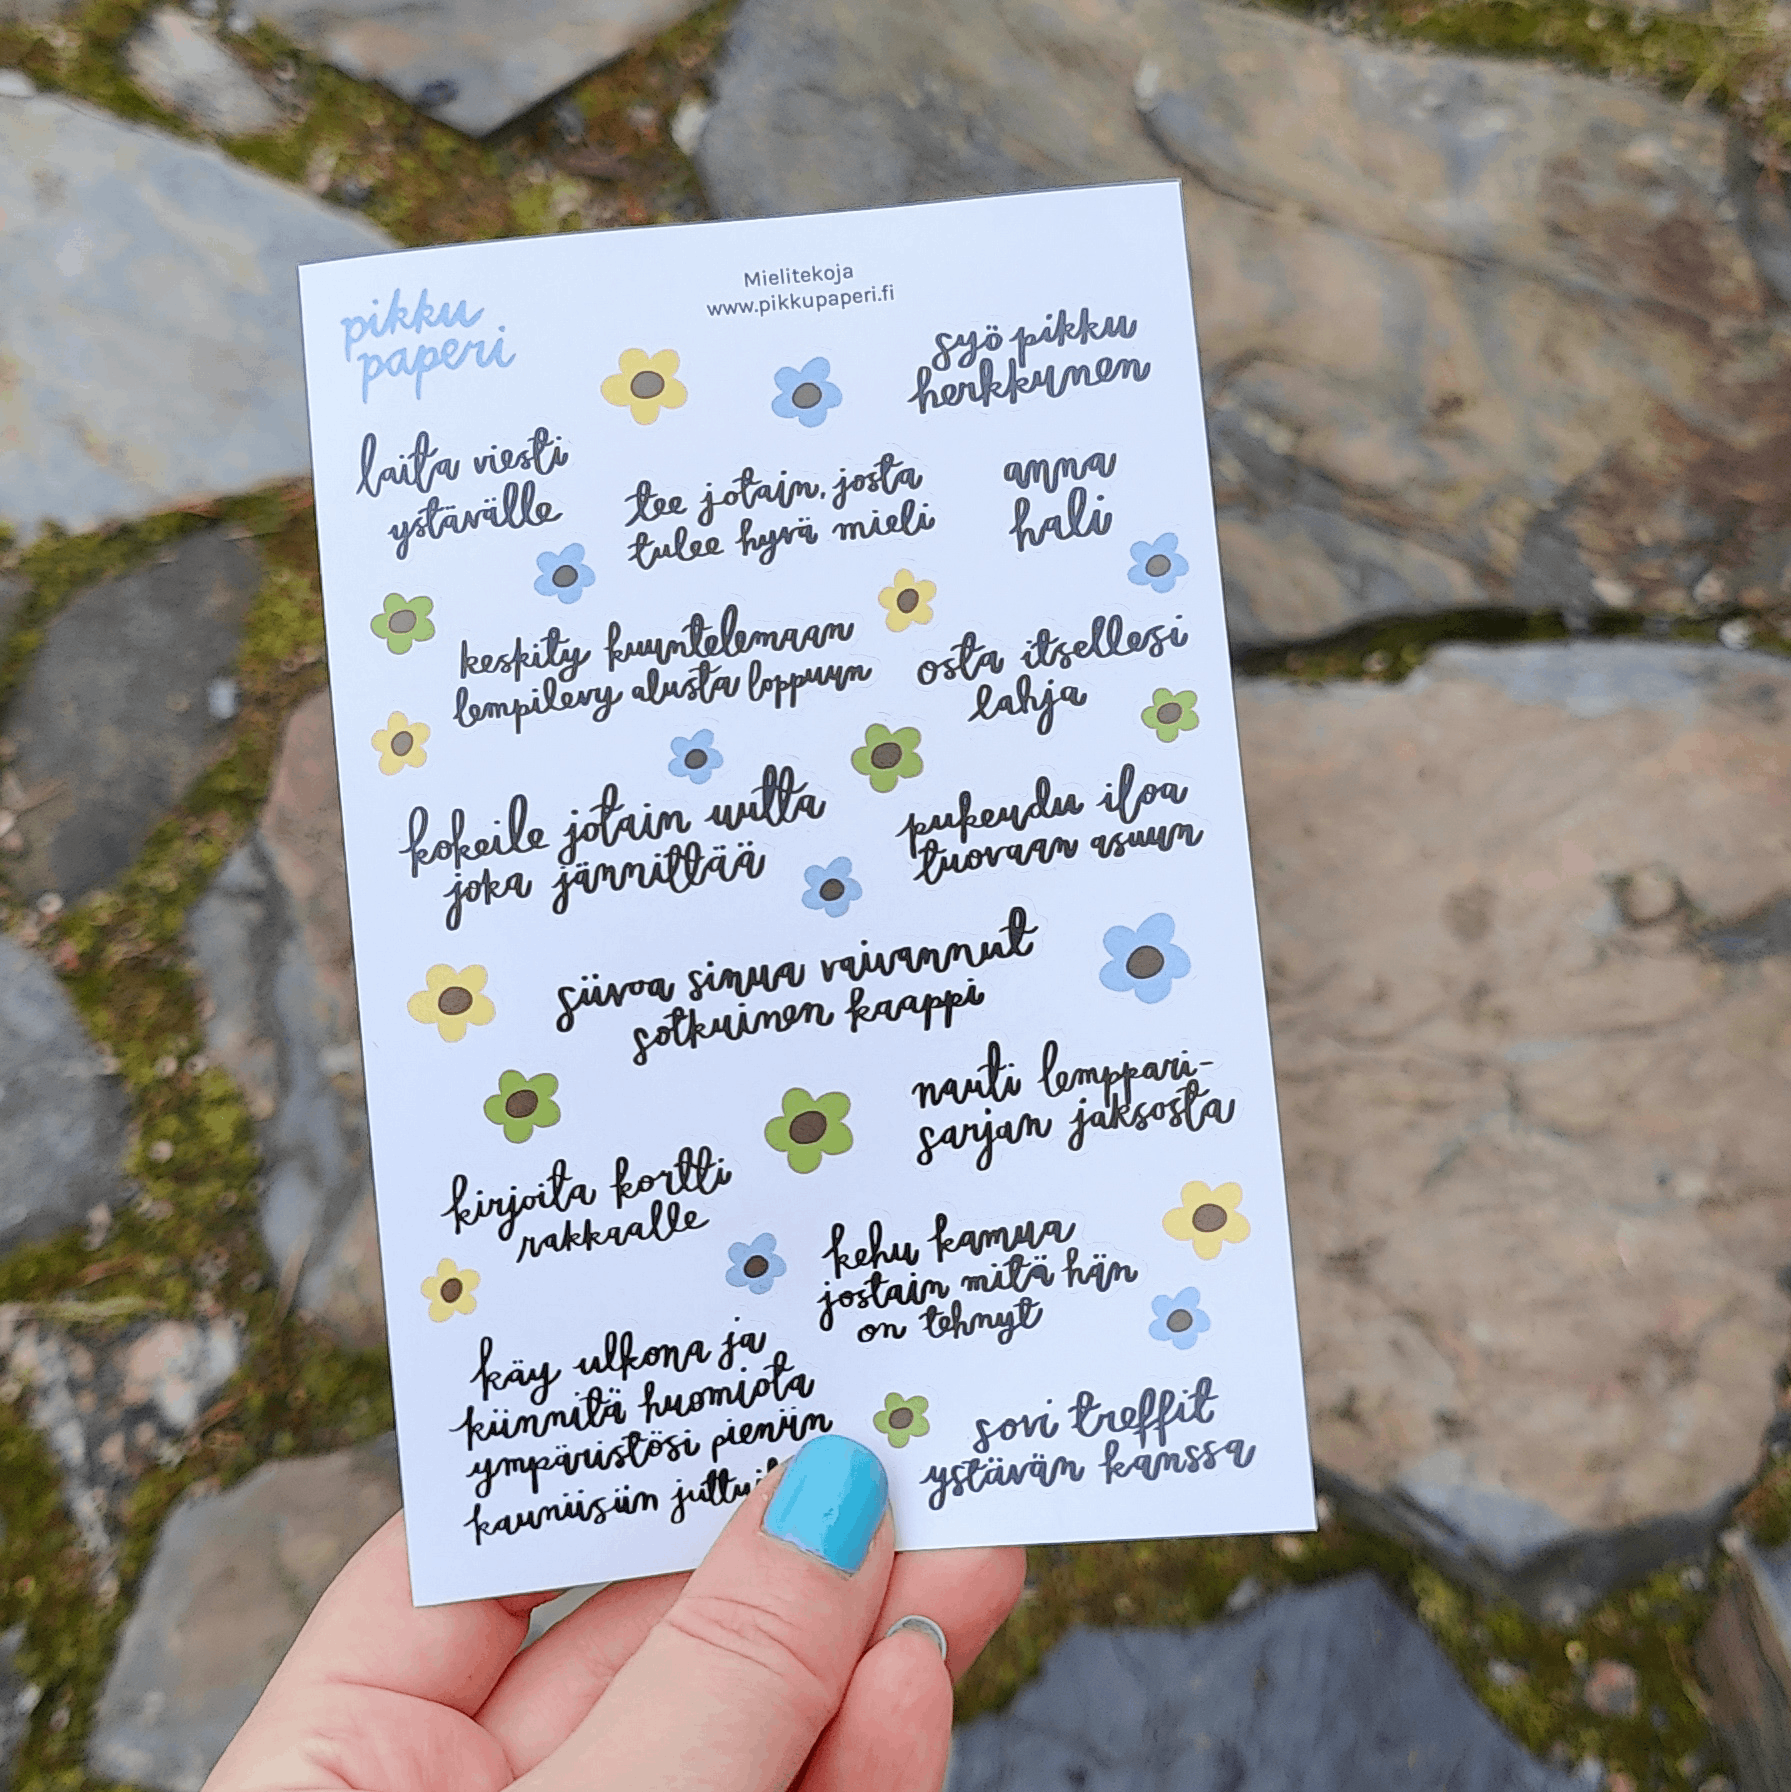 pikku
paperi
Mielitekoja
www.pikkupaperi.fi
syö pikku
herkkunen
laita viesti
ystävälle
tee jotain, josta
tulee hyvä mieli
anna
hali
keskity kuuntelemaan
lempilevy alusta loppuun
osta itsellesi
lahja
kokeile jotain uutta
joka jännittää
pukeudu iloa
tuovaan asuun
siivoa sinua vaivannut
sotkuinen kaappi
nauti lemppari-
sarjan jaksosta
kirjoita kortti
rakkaalle
kehu kamua
jostain mitä hän
on tehnyt
käy ulkona ja
kiinnitä huomiota
ympäristösi pieniin
kauniisiin
sovi treffit
ystävän kanssa